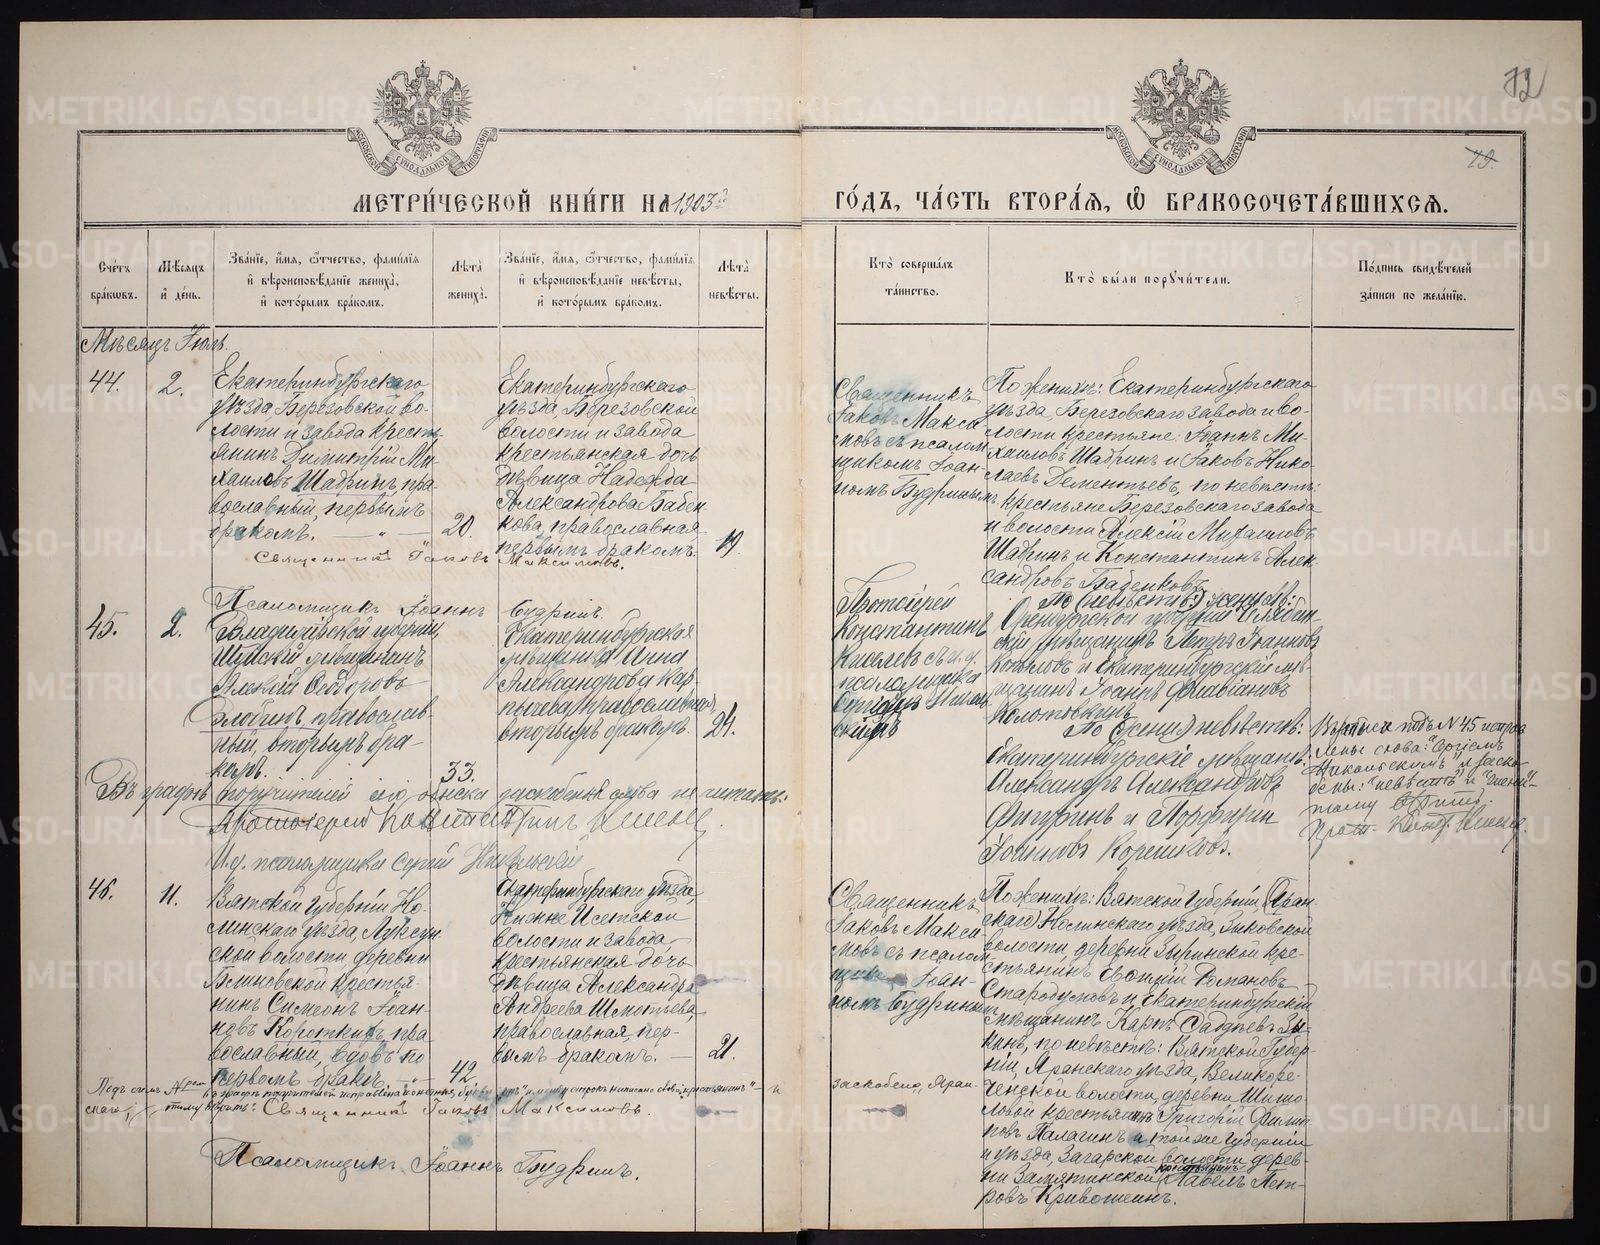 72
79.
МОСКОВСКОЙ СѴНОДАЛЬНОЙ ТИПОГРАФІИ
МОСКОВСКОЙ СѴНОДАЛЬНОЙ ТИПОГРАФІИ
МЕТРИ́ЧЕСКОЙ КНИ́ГИ НА 1903й ГО́ДЪ, ЧА́СТЬ ВТОРА́Я, Ѽ БРАКОСОЧЕТА́ВШИХСЯ.
Сче́тъ
бра́ковъ.
Мѣ́сяцъ
и҆ де́нь.
Зва́нїе, и҆́мя, ѻ҆́тчество, фами́лїя
и҆ вѣроисповѣ́данїе жениха̀,
и҆ кото́рымъ бра́комъ.
Лѣ́та
жениха̀.
Зва́нїе, и҆́мя, ѻ҆́тчество, фами́лїя
и҆ вѣроисповѣ́данїе невѣ́сты,
и҆ кото́рымъ бра́комъ.
Лѣ́та
невѣ́сты.
Кто̀ соверша́лъ
та́инство.
Кто̀ бы́ли порꙋчи́тели.
По́дпись свидѣ́телей
за́писи по жела́нїю.
Мѣсяцъ Іюль.
44.
2.
Екатеринбургскаго
уѣзда, Березовской во-
лости и завода кресть-
янинъ Димитрій Ми-
хаиловъ Шадринъ, пра-
вославный, первымъ
бракомъ. — „ —
20.
Екатеринбургскаго
уѣзда, Березовской
волости и завода
крестьянская дочь
дѣвица Надежда
Александрова Бабен-
кова, православная
первымъ бракомъ.
19
Священникъ
Іаковъ Макси-
мовъ съ псалом-
щикомъ Іоан-
номъ Будринымъ
По женихѣ: Екатеринбургскаго
уѣзда, Березовскаго завода и во-
лости крестьяне: Іоаннъ Ми-
хаиловъ Шадринъ и Іаковъ Нико-
лаевъ Дементьевъ, по невѣстѣ:
крестьяне Березовскаго завода
и волости Алексій Михаиловъ
Шадринъ и Константинъ Алек-
сандровъ Бабенковъ.
Священникъ Іаковъ Максимовъ.
Псаломщикъ Іоаннъ Будринъ.
45.
2.
Владимірской губерніи,
Шуйскій мѣщанинъ
Алексій Ѳеодоровъ
Злобинъ, православ-
ный, вторымъ бра-
комъ.
33.
Екатеринбургская
мѣщанка Анна
Александрова Кар-
пычева, православная,
вторымъ бракомъ.
24.
Протоіерей
Константинъ
съ и. д.
псаломщика
По (невѣстѣ:) женихѣ:
Оренбургской губерніи Челябин-
скій мѣщанинъ Петръ Іоанновъ
и Екатеринбургскій мѣ-
щанинъ Іоаннъ Флавіановъ
Колотовкинъ
По (жени) невѣстѣ:
Екатеринбургскіе мѣщане:
Александръ Александровъ
и Порфирій
Іоанновъ Корешковъ.
В записи подъ N 45 исправ-
лены слова: "Сергіемъ
Никольскимъ" и заско-
блены: "невѣстѣ" и "жени"
тому вѣрить.
Въ графѣ поручителей слова не читать:
Протоіерей
И. д. псаломщика Сергій Никольскій
46.
11.
Вятской Губерніи Но-
линскаго уѣзда, Луксун-
ской волости, деревни
крестья-
нинъ Симеонъ Іоан-
новъ Короткихъ, пра-
вославный, вдовъ по
первомъ бракѣ —
42.
Екатеринбургскаго уѣзда,
Нижне Исетской
волости и завода
крестьянская дочь
дѣвица Александра
Андреева Шмотьева,
православная, пер-
вымъ бракомъ. —
21.
Священникъ
Іаковъ Макси-
мовъ съ псалом-
щикомъ Іоан-
номъ Будринымъ
По женихѣ: Вятской Губерніи, (Яран-
скаго) Нолинскаго уѣзда, Зыковской
волости, деревни Зыринской кре-
стьянинъ Евѳимій Романовъ
Стародумовъ и Екатеринбургскій
мѣщанинъ Карпъ Фаддѣевъ Зы-
кинъ, по невѣстѣ: Вятской Губер-
ніи, Яранскаго уѣзда, Великорѣ-
ченской волости, деревни Шишо-
ловой крестьянинъ Григорій Филип-
повъ Палагинъ и той же Губерніи
и уѣзда, Загарской волости дерев-
ни Замятинской крестьянинъ Павелъ Пет-
ровъ Кривошеинъ.
Подъ симъ въ графѣ поручителей исправлена и между строкъ написано слово „крестьянинъ“ – и заскоблено „Яран-
скаго“, тому вѣрить: Священникъ Іаковъ Максимовъ.
Псаломщикъ Іоаннъ Будринъ.
METRIKI.GASO-URAL.RU